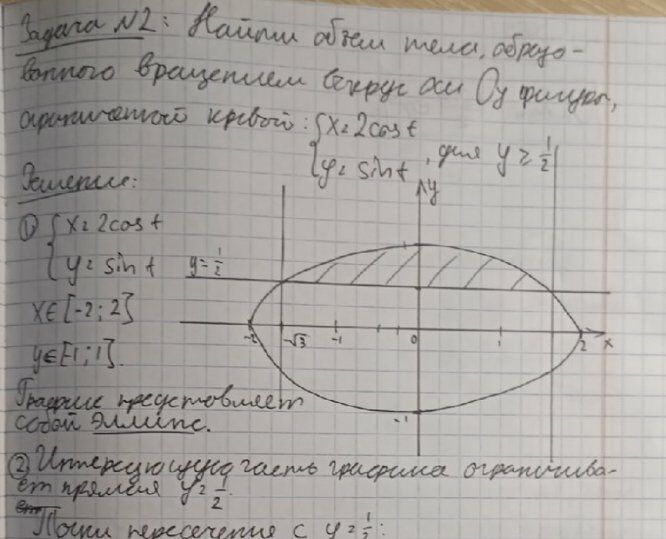 Задача №2: Найти объем тела, образо-
ванного вращением вокруг оси Oy фигуры,
ограниченной кривой: {x=2cost
{y=sint, для y≥1/2
Решение:
① {x=2cost
{y=sint
x∈[-2;2]
y∈[1;1].
y=1/2
y
-2 -√3 -1 0 1 2 x
-1
График представляет
собой эллипс.
② Интересующую часть графика ограничива-
ет прямая y=1/2.
Точки пересечения с y=1/2: